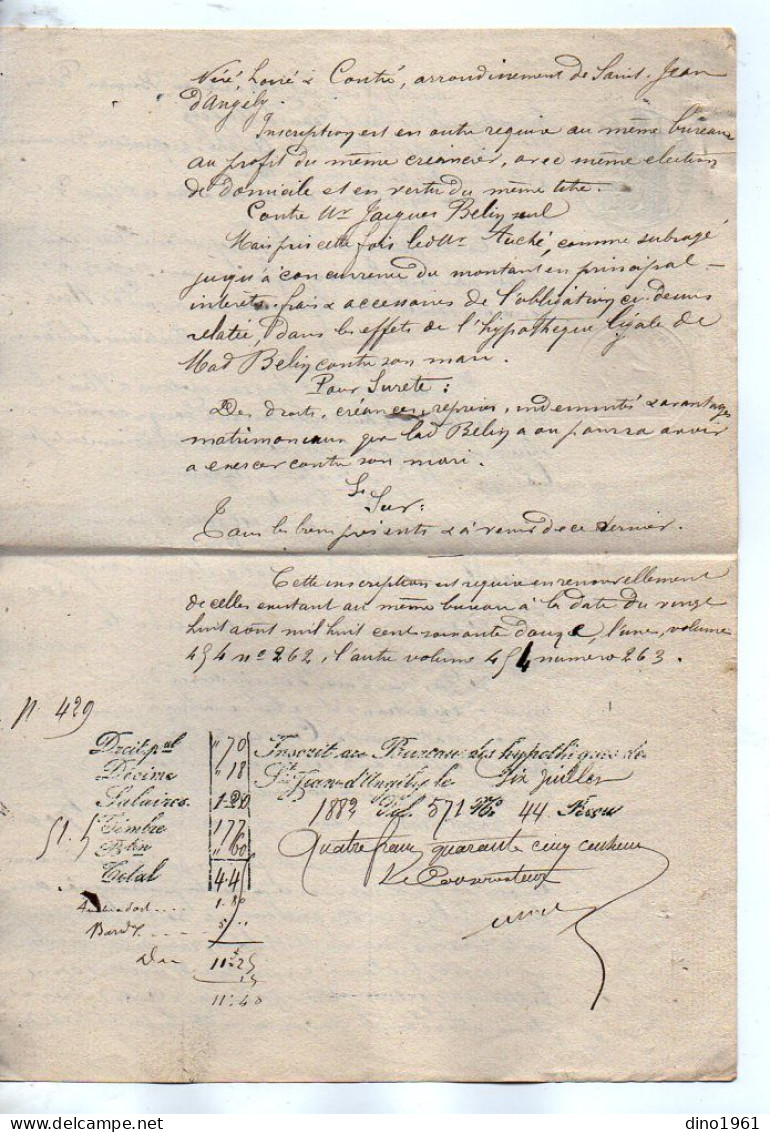 Néré, Loiré & Contré, arrondissement de Saint-Jean
d'Angély.
Inscription est en outre requise au même bureau
au profit du même créancier, avec même election
de domicile et en vertu du même titre.
Contre Mr Jacques Belin seul
Mais pris cette fois led. Mr Auché, comme subrogé
jusqu'à concurrence du montant en principal
intérêts, frais & accessoires de l'obligation ci-dessus
relatée, dans les effets de l'hypothèque légale de
Mad Belin contre son mari.
Pour Sureté:
Des droits, créances, reprises, indemnités & avantages
matrimoniaux que lad Belin a ou pourra avoir
a exercer contre son mari.
Sur:
Tous les biens présents & à venir de ce dernier.
Cette inscription est requise en renouvellement
de celles existant au même bureau à la date du vingt
huit août mil huit cent soixante douze, l'une, volume
454 no 262, l'autre volume 454 numero 263.
N. 429
Droit pal " 70
Inscrit au Bureau des hypothèques de
Décime " 18
St Jean d'Angély le six juillet
Salaires 1.20
1882 Vol. 571 No 44 Reçu
Timbre 1 77
Bon " 60
Quatre francs quarante cinq centimes
Total 4.45
Le Conservateur
1.80
5 "
Du 11.25
15
11.40
dino1961